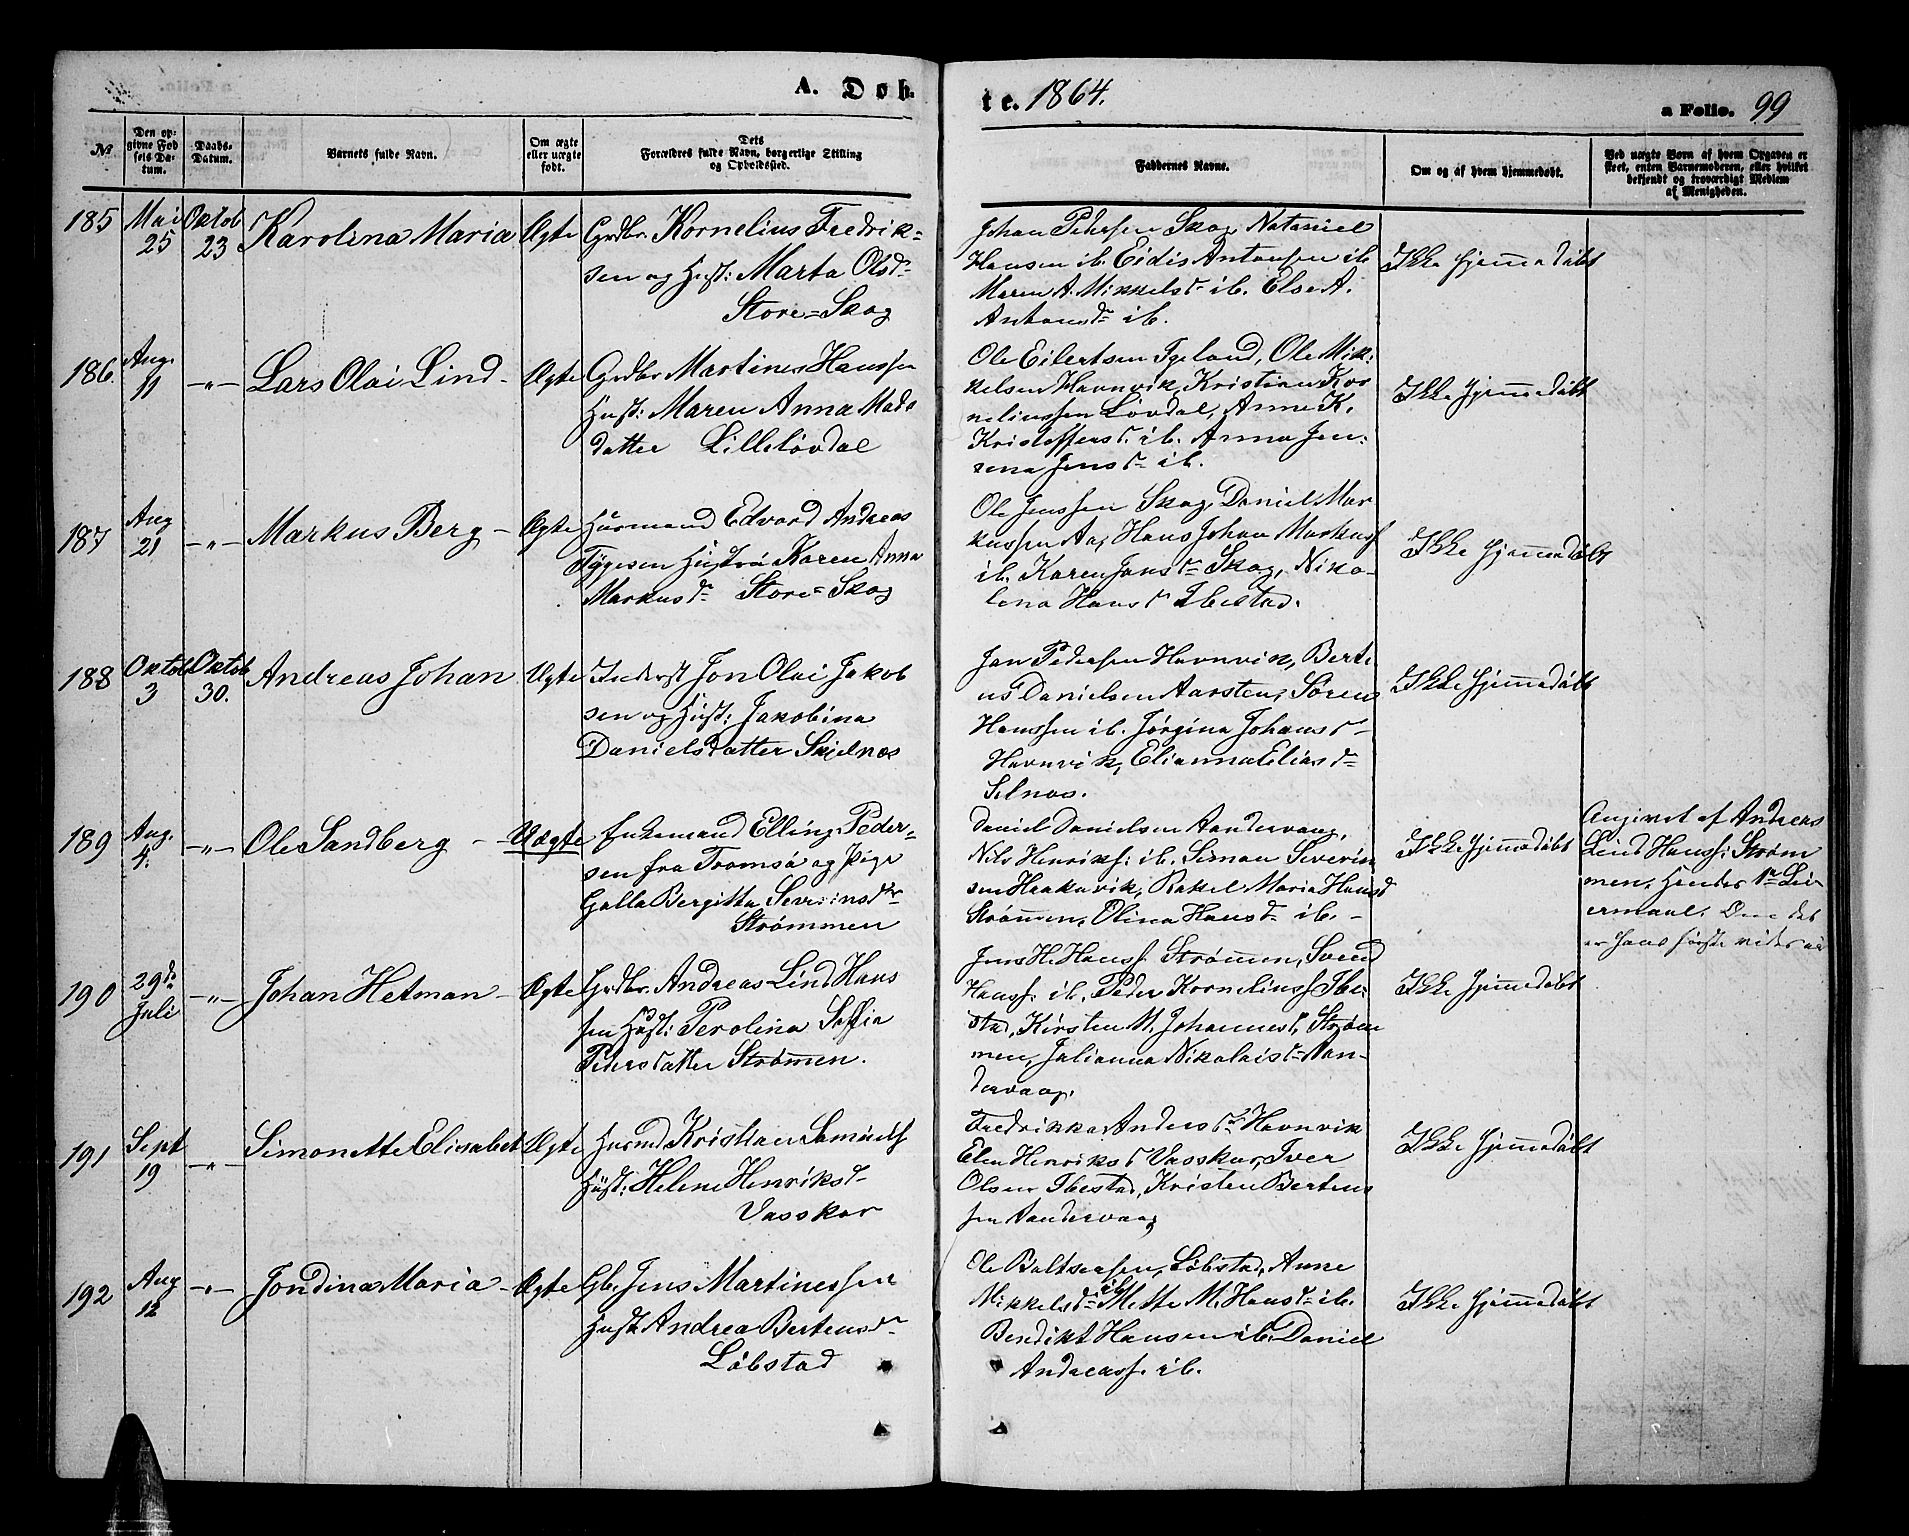 A. Døb-
te. 1864.
a Folio. 99
№
Den op-
givne Fød
sels Da-
tum.
Daabs-
Datum.
Barnets fulde Navn.
Om ægte
eller uægte
født.
Dets
Forældres fulde Navn, borgerlige Stilling
og Opholdssted.
Faddernes Navne.
Om og af hvem hjemmedøbt.
Ved uægte Børn af hvem Opgaven er
skeet, enten Barnemoderen, eller hvilket
bekjendt og troværdigt Medlem
af Menigheden.
185
Mai
25
Oktob
23
Karolina Maria
Ægte
Grdbr. Kornelius Fredrik=
sen og Hust: Marta Olsdr
Store=Skog
Johan Pedersen Skog, Nataniel
Hansen ib. Eidis Antonsen ib
Maren A. Mikkelsdr ib. Else A.
Antonsdr ib.
Ikke hjemmedøbt
186.
Aug.
11
-"-
Lars Olai Lind
Ægte
Grdbr Martines Hanssen
Hust: Maren Anna Mads
datter Lilleløvdal
Ole Eilertsen Igeland, Ole Mik-
kelsen Havnvik, Kristian Kor
neliussen Løvdal, Anne K.
Kristoffersd. ib. Anna Jen-
sena Jensdr ib.
Ikke hjemmedøbt
187
Aug
21
-"-
Markus Berg
Ægte
Husmand Edvard Andreas
Tygesen Hustru Karen Anna
Markusdr Store=Skog
Ole Jenssen Skog, Daniel Mar
kussen Aa, Hans Johan Markuss
ib. Karen Jansdr Skog, Niko-
lena Hansdr Ibestad.
Ikke hjemmedøbt
188
Oktob
3
Oktob
30.
Andreas Johan
Ægte
Inderst Jon Olai Jakob
sen og Hust: Jakobina
Danielsdatter Skjelnes
Jan Pedersen Havnvik, Berte
us Danielsen Aarsten, Søren
Hanssen ib. Jørgina Johansdr
Havnvik, Elianna Eliasdr
Selnæs.
Ikke hjemmedøbt
189
Aug.
4.
-"-
Ole Sandberg
Uægte
Enkemand Elling Peder=
sen fra Tromsø og Pige
Golla Bergitta Severinsdtr
Strømmen
Daniel Danielsen Aandervaag,
Nils Henriks: ib. Simon Severin
sen Haakavik, Rakel Maria Hansd
Strømmen, Olina Hansdr ib.
Ikke hjemmedøbt
Angivet af Andreas
Lind Hanss: Strøm
men. Hendes 1ste Lei
ermaal.
er hans første
190
29de
Juli
-"-
Johan Hetman
Ægte
Grdbr. Andreas Lind Hans
sen Hust: Perolina Soffia
Pedersdatter Strømmen.
Jens H. Hanss. Strømmen, Svend
Hanss. ib. Peder Korneliuss Ibe-
stad, Kirsten M. Johannesd. Strøm
men, Julianna Nikolaisdr Aan-
dervaag.
Ikke hjemmedøbt
191
Sept
19
-"-
Simonette Elisabet
Ægte
Husmd Kristian Samuels
Hust: Helene Henriksdr
Vasskar
Fredrikka Andersdr Havnvik
Elen Henriksdr Vasskar, Iver
Olsen Ibestad, Kristen Berteus
sen Aandervaag
Ikke hjemmedøbt
192
Aug
12
-"-
Jondina Maria
Ægte
Gbr. Jens Martinessen
Hust Andrea Berteusdr
Løbstad
Ole Baltsersen, Løbstad, Anne
Mikkelsdr ib Mette M. Hansdr ib.
Bendikt Hansen ib. Daniel
Andreass. ib.
Ikke hjemmedøbt